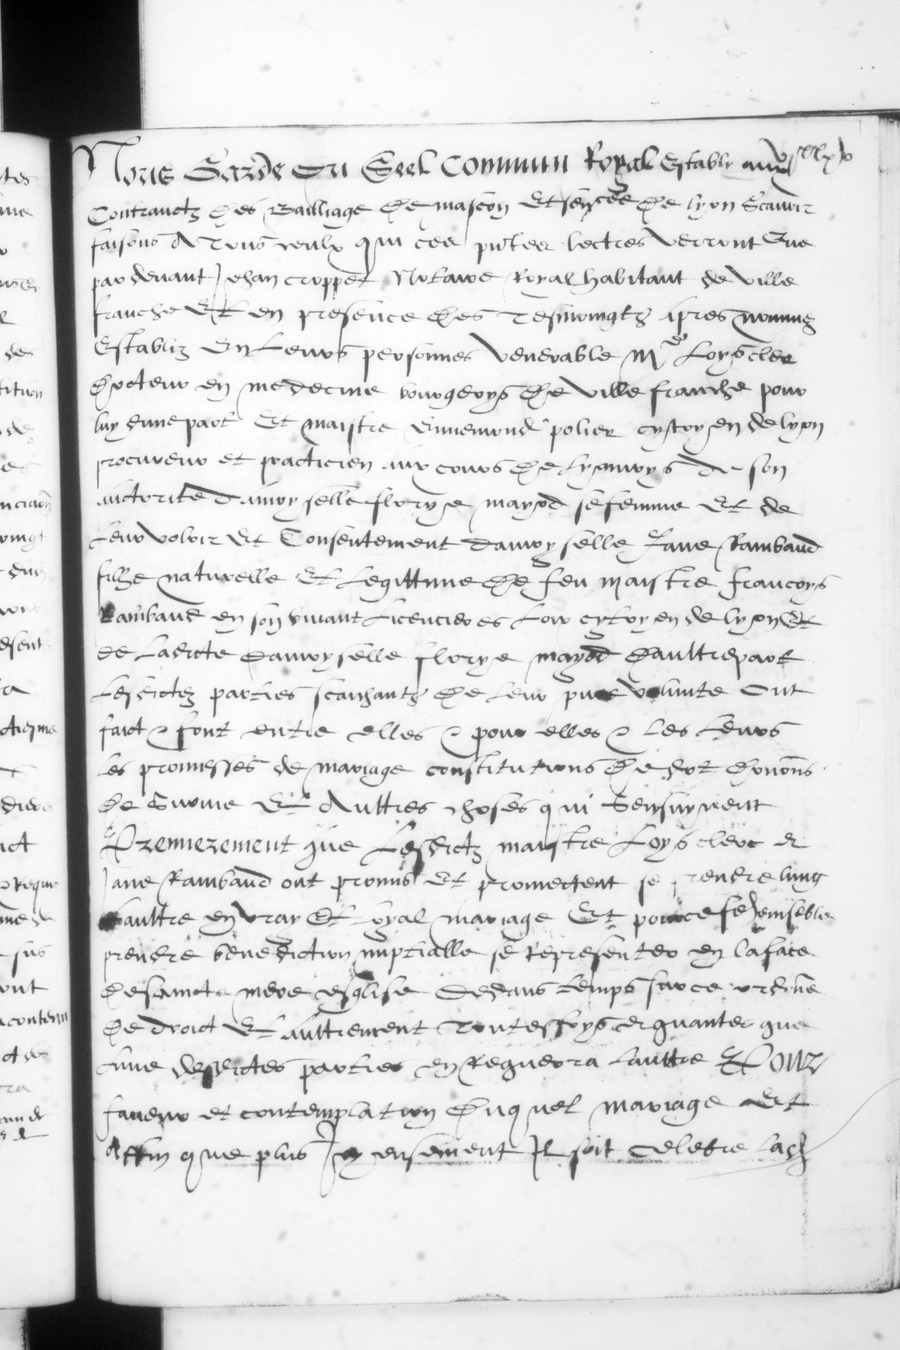 Nous Garde du Seel Commun Royal Estably aux
Contractz des Bailliage de mascon Et senchee de lyon Scavoir
faisons A tous ceulx qui ces pntes lectres verront Que
par devant Jehan croppet Notaire Royal habitant de ville
franche Et en presence des tesmoingtz apres nommez
Establiz En Leurs personnes venerable Me Loys clerc
docteur en medecine bourgeoys de ville franche pour
luy dune part Et maistre Ennemond polier cytoyen de lyon
procureur et practicien aux cours de lyonnoys De son
auctorite damoyselle florye mayod sefemme Et de
Leur voloir Et Consentement damoyselle Jane Rambaud
filhe naturelle Et Legittime de feu maistre francoys
Rambaud en son vivant Licencier es Loix cytoyen de lyon Et
de Ladicte damoyselle florye mayod daultre part
Lesdictz parties scaichantz de leur pure volunte Ont
faict & font entre elles & pour elles & les Leurs
les promesses de mariage constitutions de dot donaons
de survie Et Aultres choses qui Sensuyvent
Premierement que Lesdictz maistre Loys clerc et
Jane Rambaud ont promis Et promectent se prendre lung
laultre en vray Et loyal mariage Et pour ce fe ensemble
prendre benediction nuptialle se Representer en la face
de saincte mere esglise dedans temps sur ce ordonne
de droict Et aultrement touteffoys et quantes que
Lune desdictes parties en Requerra laultre Pour
faveur et contemplation duquel mariage Et
Affin que plus Il soit celebre lad